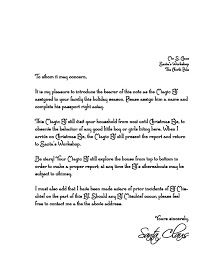 Mr. S. Claus
Santa's Workshop
The North Pole
To whom it may concern,
It is my pleasure to introduce the bearer of this note as the Magic Elf
assigned to your family this holiday season. Please assign him a name and
complete his passport right away.
This Magic Elf will visit your household from now until Christmas Eve, to
observe the behavior of any good little boy or girls living here. When I
arrive on Christmas Eve, the Elf will present this report and return
to Santa's Workshop.
Be wary! Your Magic Elf will explore the house from top to bottom in
order to make a proper report; at any time the Elf's whereabouts may be
subject to
I must also add that I have been made aware of prior incidents of Elf
on the part of this Elf. Should any Elf occur, please feel
free to contact me at the above address.
Yours sincerely,
Santa Claus